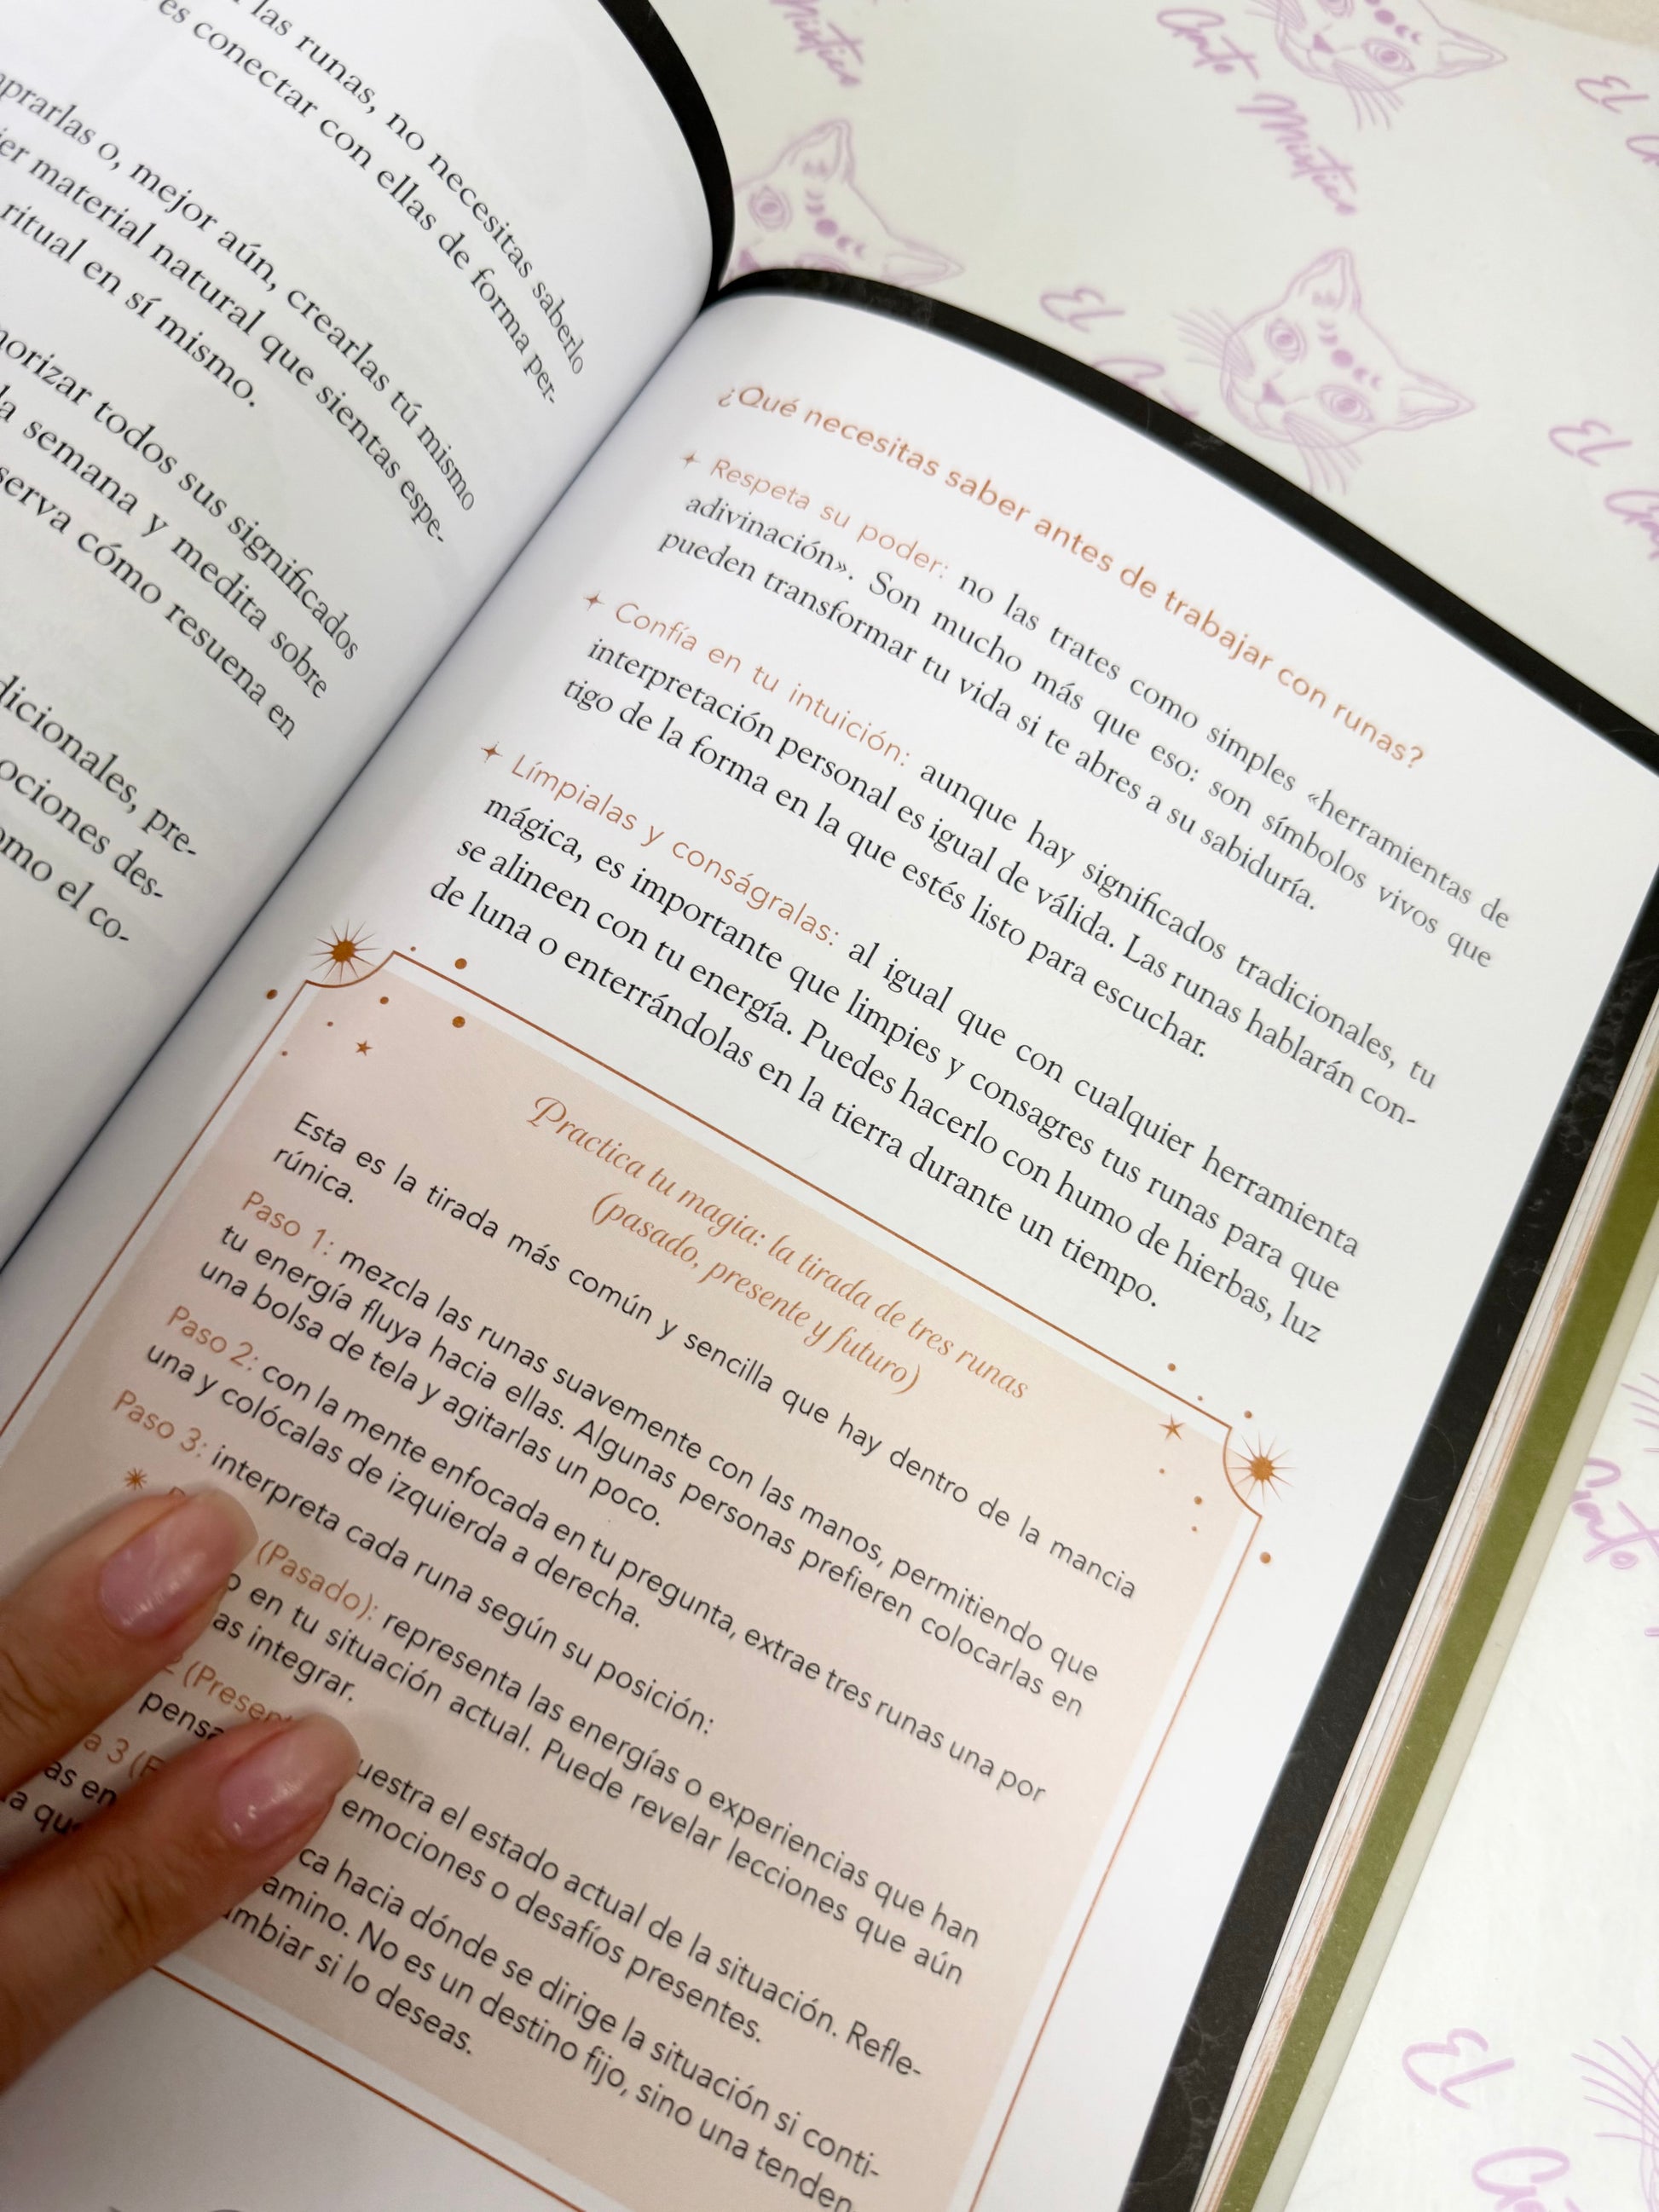 las runas, no necesitas saberlo
es conectar con ellas de forma per-
o, mejor aún, crearlas tú mismo
material natural que sientas espe-
ritual en sí mismo.
todos sus significados
la semana y medita sobre
cómo resuena en
pre-
des-
el co-
¿Qué necesitas saber antes de trabajar con runas?
Respeta su poder: no las trates como simples «herramientas de
adivinación». Son mucho más que eso: son símbolos vivos que
pueden transformar tu vida si te abres a su sabiduría.
Confía en tu intuición: aunque hay significados tradicionales, tu
interpretación personal es igual de válida. Las runas hablarán con-
tigo de la forma en la que estés listo para escuchar.
Límpialas y conságralas: al igual que con cualquier herramienta
mágica, es importante que limpies y consagres tus runas para que
se alineen con tu energía. Puedes hacerlo con humo de hierbas, luz
de luna o enterrándolas en la tierra durante un tiempo.
Practica tu magia: la tirada de tres runas
(pasado, presente y futuro)
Esta es la tirada más común y sencilla que hay dentro de la mancia
rúnica.
Paso 1: mezcla las runas suavemente con las manos, permitiendo que
tu energía fluya hacia ellas. Algunas personas prefieren colocarlas en
una bolsa de tela y agitarlas un poco.
Paso 2: con la mente enfocada en tu pregunta, extrae tres runas una por
una y colócalas de izquierda a derecha.
Paso 3: interpreta cada runa según su posición:
(Pasado): representa las energías o experiencias que han
en tu situación actual. Puede revelar lecciones que aún
integrar.
2 el estado actual de la situación. Refle-
emociones o desafíos presentes.
3 hacia dónde se dirige la situación si conti-
No es un destino fijo, sino una
si lo deseas.
El Gato Místico
El Gato Místico